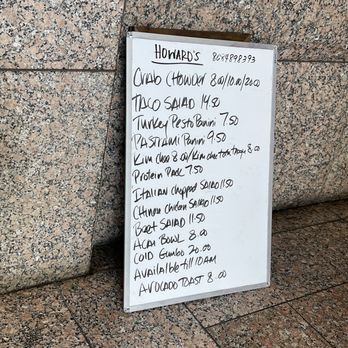 HOWARD'S 8084898393
CRAB CHOWDER 8.00/10.00/20.00
TACO SALAD 14.50
Turkey Pesto Panini 7.50
PASTRAMI Panini 9.50
Kim Chee 8.00/Kim chee 8.00
Protein Pack 7.50
ITALIAN chopped SALAD 11.50
Chinese chicken SALAD 11.50
Beet SALAD 11.50
ACAI BOWL 8.00
COLD Gumbo 20.00
Available till 10AM
AVOCADO TOAST 8.00